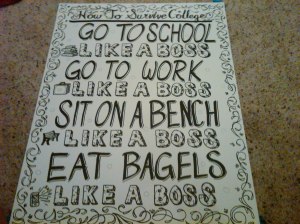 How To Survive College
GO TO SCHOOL
LIKE A BOSS
GO TO WORK
LIKE A BOSS
SIT ON A BENCH
LIKE A BOSS
EAT BAGELS
LIKE A BOSS